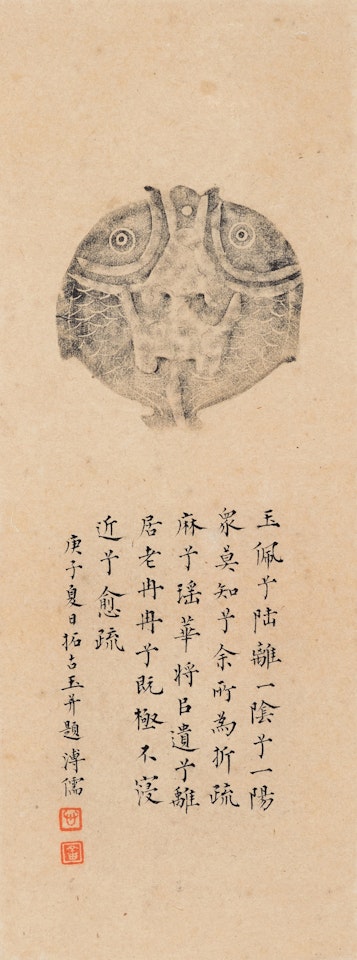 玉佩兮陸離一陰兮一陽
衆莫知兮余所為折疏
麻兮瑶華將㠯遺兮離
居老冉冉兮既極不寖
近兮愈疏
庚子夏日拓古玉并題 溥儒